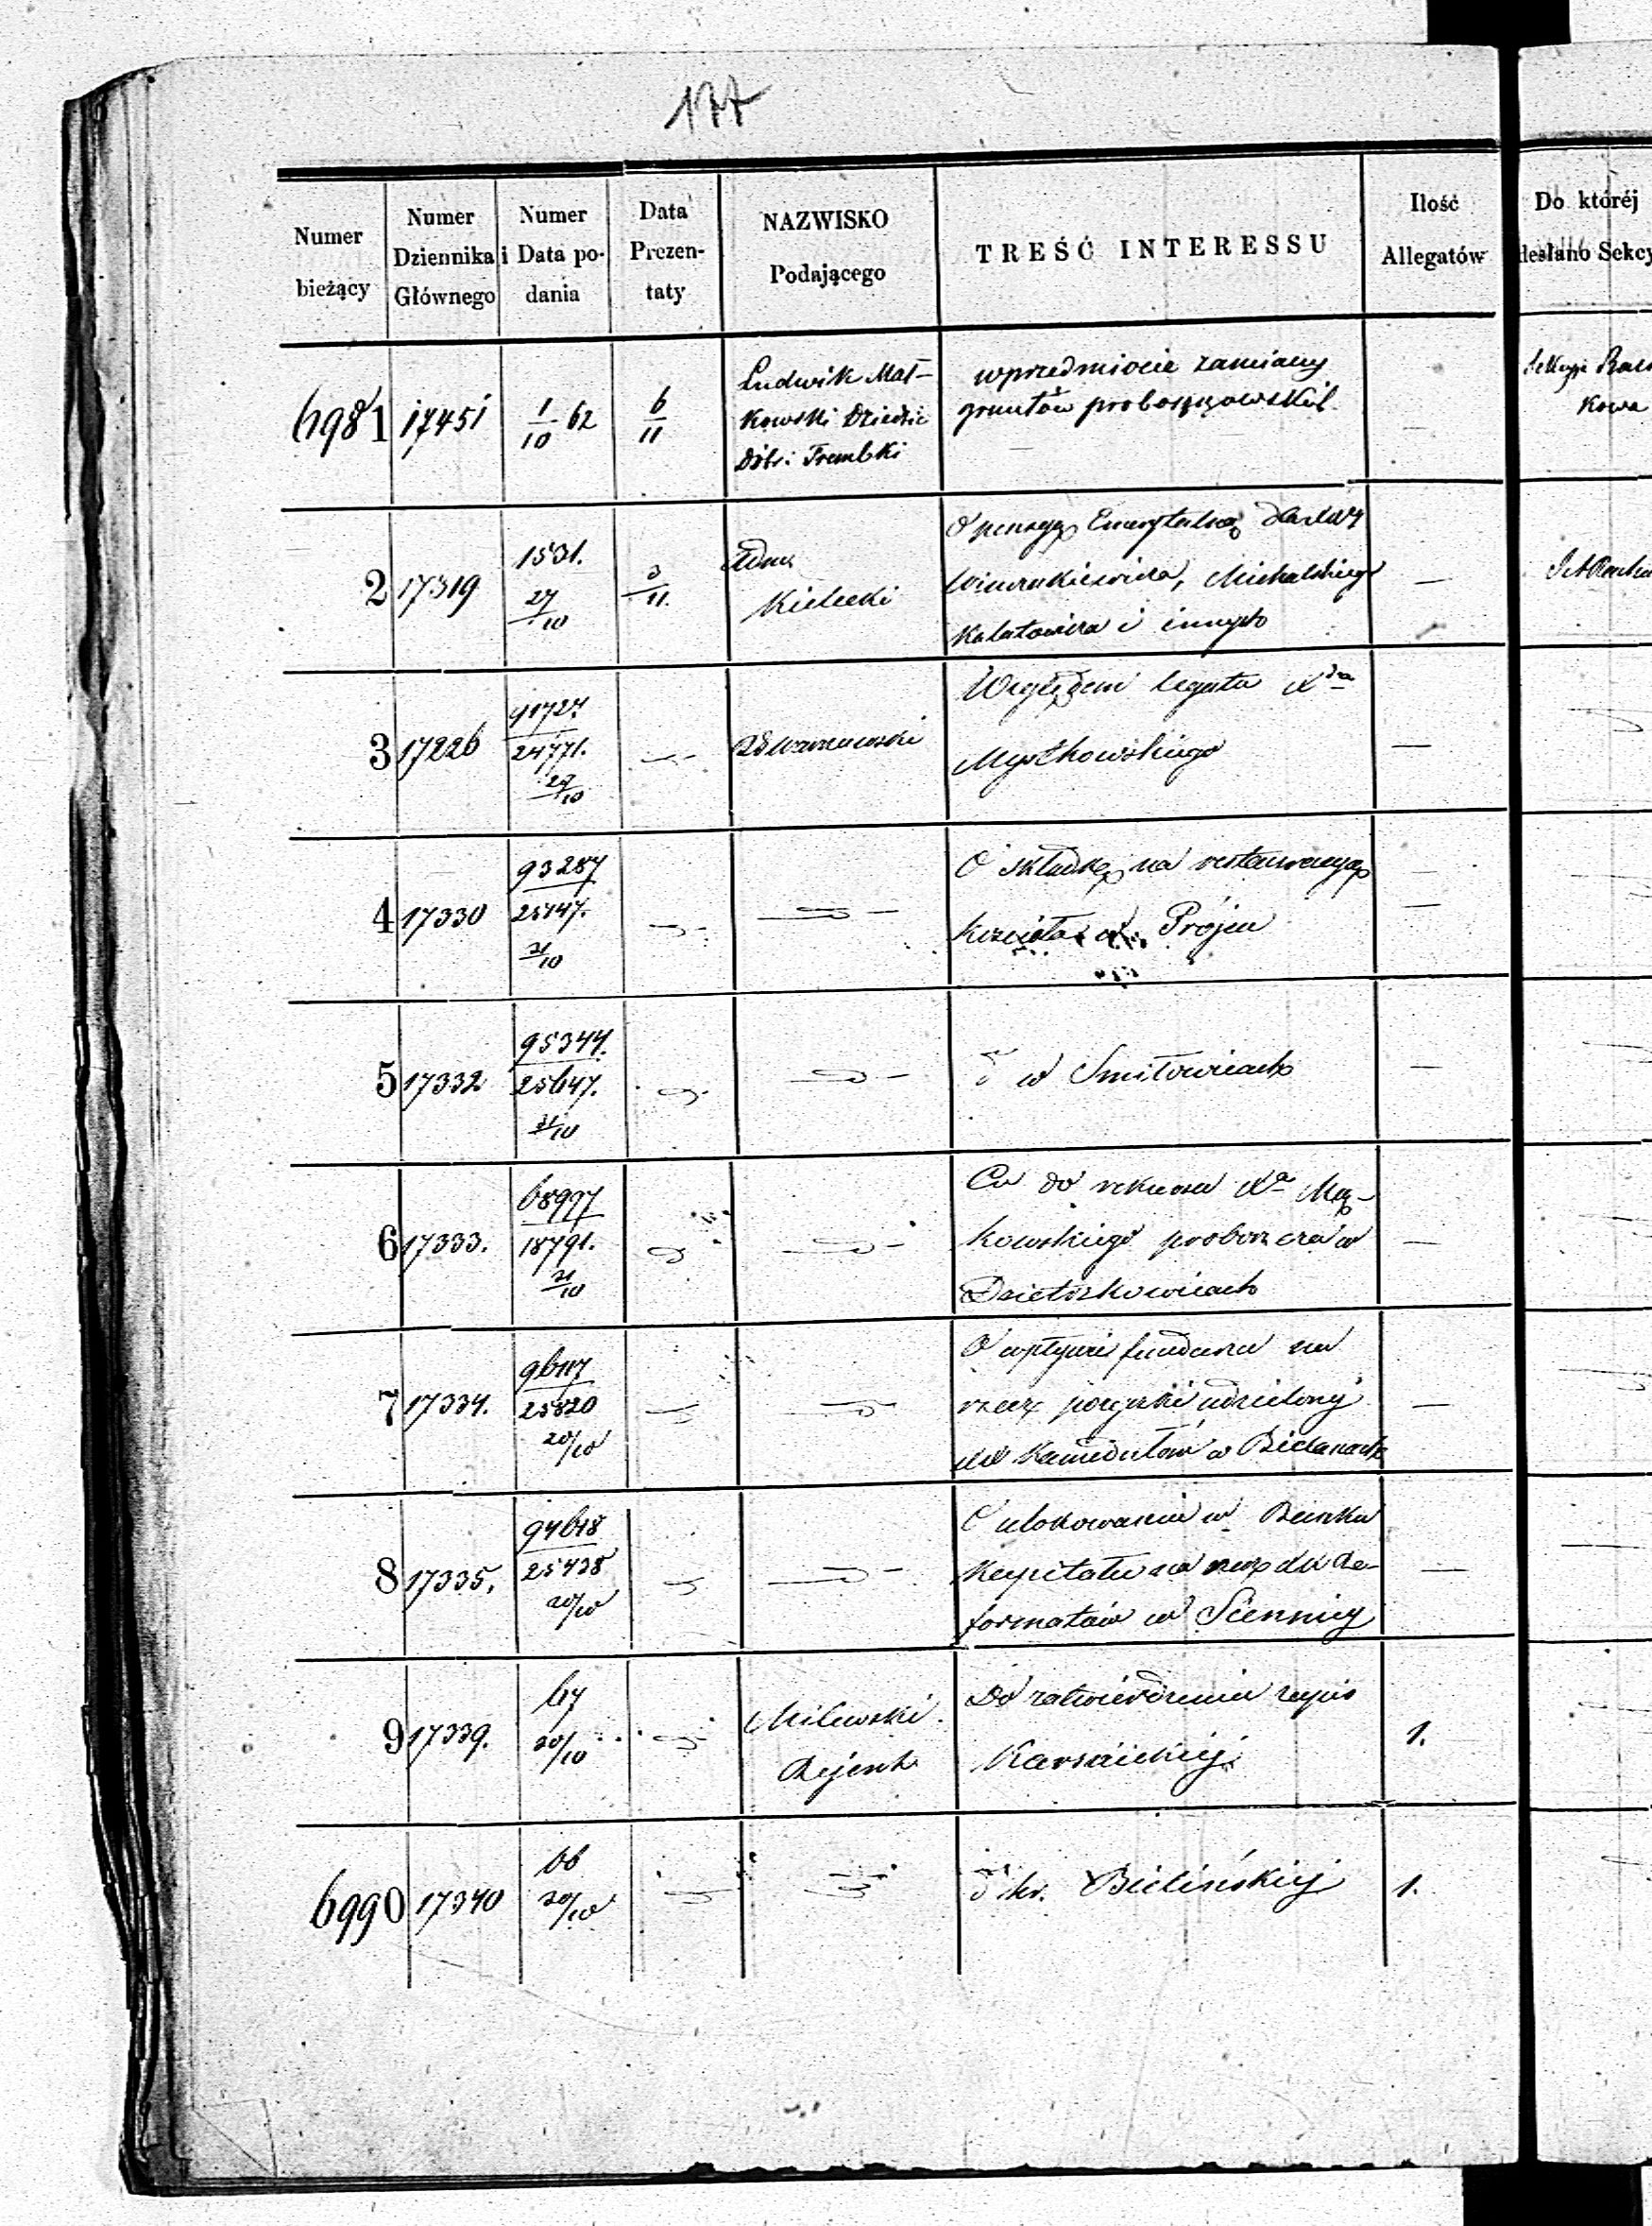 177
Numer bieżący
Numer Dziennika Głównego
Numer i Data podania
Data Prezentaty
NAZWISKO Podającego
TREŚĆ INTERESSU
Ilość Allegatów
Do któréj
desłano Sekcy
6981 17451 1/10 62 6/11
Ludwik Mał-
kowski Dziedzic
Dóbr: Trembki
wprzedmiocie zamiany
gruntów proboszczowskich
Sekcyi Rach
kowa
2 17319 1531. 27/10 3/11.
Adm
Kielecki
O pensyę Emerytalną dla xdzy
Michalskiego
i innych
—
3 17226 91727. 24771. 27/10
Względem legatu Xdza
Myszkowskiego
—
4 17330 93287 25147. 31/10
O składkę na restauracyę
kościoła w Prójcu
—
5 17332 95344. 25647. 31/10
d° w Smiłowicach
—
6 17333. 68997 18791. 31/10
Co do rekursu Xa Mą-
kowskiego proboszcza w
Dzietrzkowicach
—
7 17334. 25820 30/10
O wpływie funduszu na
rzecz pożyczki udzielonej
XX Kamedułów w Bielanach
—
8 17335. 94618 25438 30/10
O ulokowanie w Banku
Kapitału na rzecz XX Re-
formatów w Siennicy
—
9 17339. 67 30/10
Milewski
Rejent
Do zatwierdzenia zapis
Karsnickiej
1.
6990 17340 66 30/10
d° hr. Bielińskiej
1.